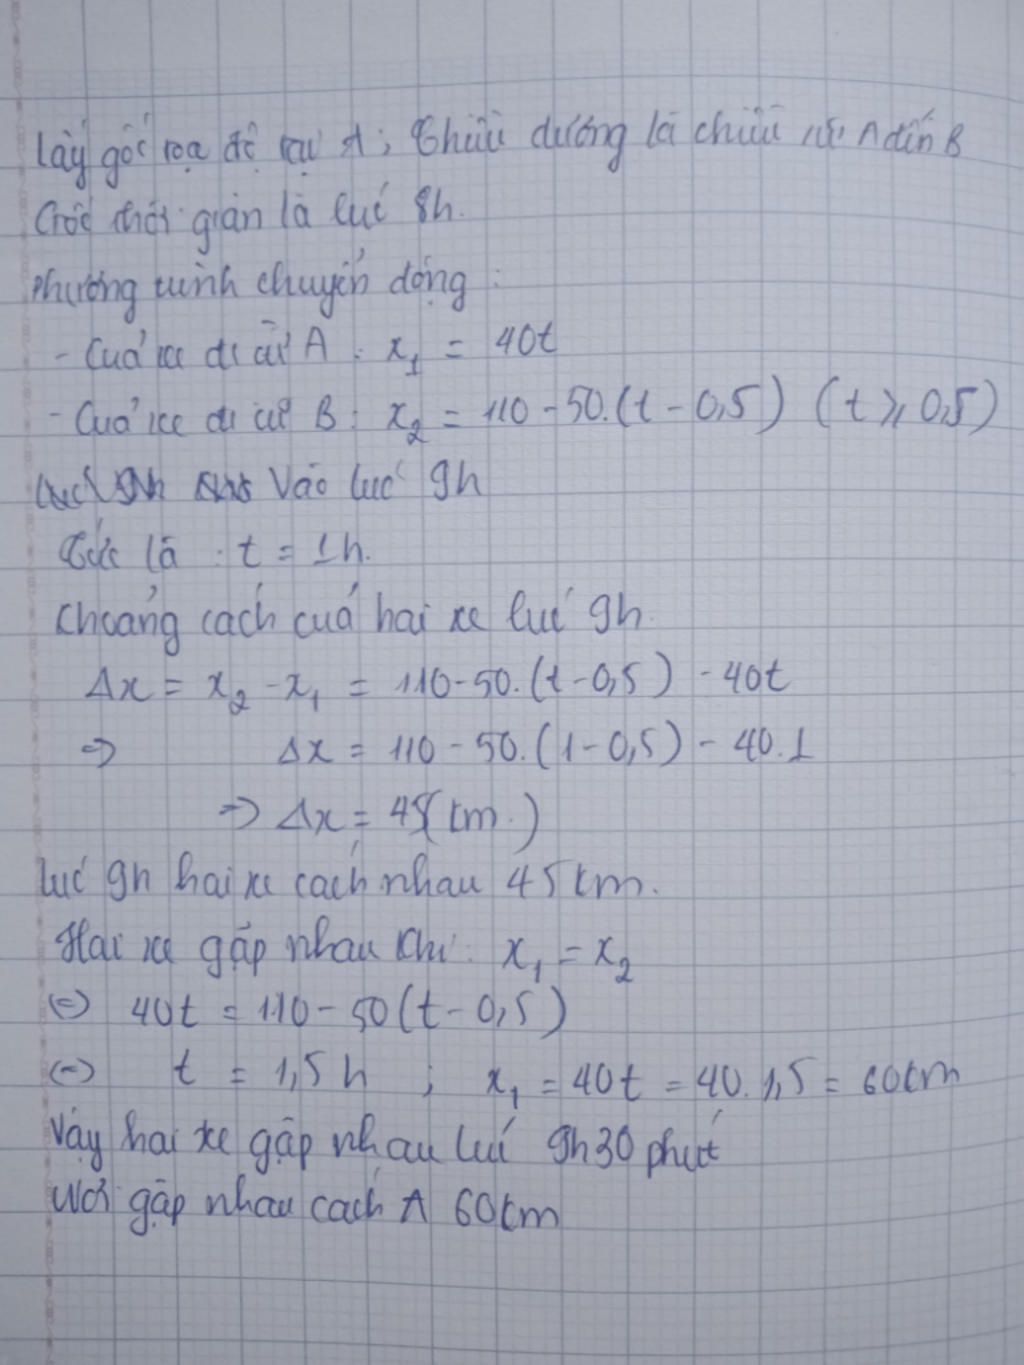 Lấy gốc toạ độ tại A; Chiều dương là chiều từ A đến B
Gốc thời gian là lúc 8h.
Phương trình chuyển động :
- Của xe đi từ A : x₁ = 40t
- Của xe đi từ B : x₂ = 110 - 50.(t - 0,5) (t ⩾ 0,5)
Vào lúc 9h
Tức là : t = 1h.
Khoảng cách của hai xe lúc 9h.
Δx = x₂ - x₁ = 110 - 50.(t - 0,5) - 40t
=> Δx = 110 - 50.(1 - 0,5) - 40.1
=> Δx = 45(km.)
lúc 9h hai xe cách nhau 45km.
Hai xe gặp nhau khi : x₁ = x₂
(=) 40t = 110 - 50(t - 0,5)
(=) t = 1,5h ; x₁ = 40t = 40.1,5 = 60km
Vậy hai xe gặp nhau lúc 9h30 phút
Nơi gặp nhau cách A 60km